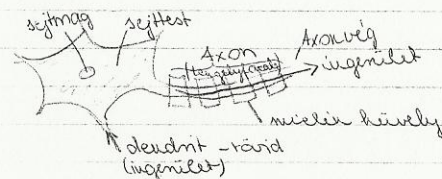 sejtmag
sejttest
Axon
Axonvég
ingerület
mielin hüvely
dendrit - rövid
(ingerület)